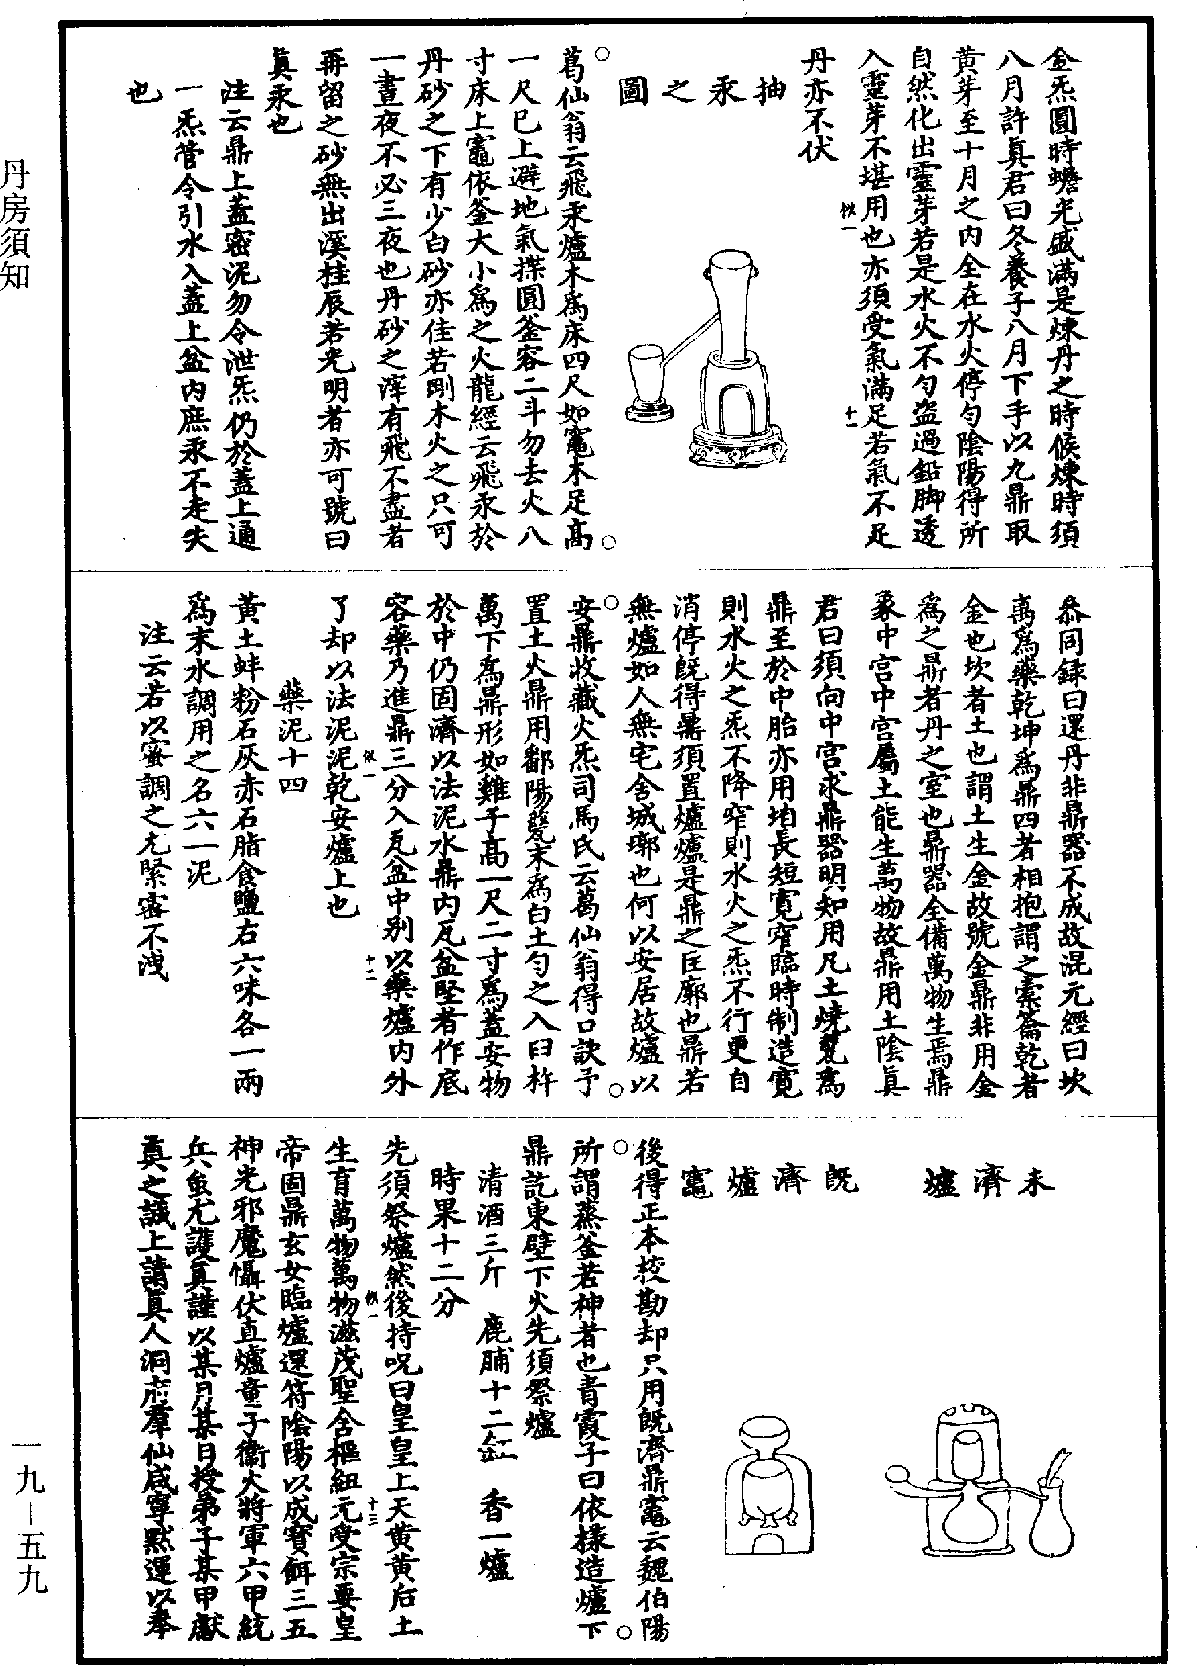 丹房須知
一九—五九
金炁圓時蟾光盛滿是煉丹之時候煉時須
八月許真君曰冬養子八月下手以九鼎取
黃芽至十月之內全在水火停勻陰陽得所
自然化出靈芽若是水火不勻盜過鉛脚透
入靈芽不堪用也亦須受氣滿足若氣不足
丹亦不伏
抽汞之圖
葛仙翁云飛汞爐木為床四尺如竈木足高
一尺已上避地氣揲圓釜容二斗勿去火八
寸床上竈依釜大小為之火龍經云飛汞於
丹砂之下有少白砂亦佳若剛木火之只可
一晝夜不必三夜也丹砂之滓有飛不盡者
再留之砂無出溪桂辰若光明者亦可號曰
真汞也
注云鼎上蓋密泥勿令泄炁仍於蓋上通
一炁管令引水入蓋上盆內庶汞不走失
也
叅同録曰還丹非鼎器不成故混元經曰坎
离為藥乾坤為鼎四者相抱謂之橐籥乾者
金也坎者土也謂土生金故號金鼎非用金
為之鼎者丹之室也鼎器全備萬物生焉鼎
象中宮中宮屬土能生萬物故鼎用土陰真
君曰須向中宮求鼎器明知用凡土燒甆為
鼎至於中胎亦用坩長短寬窄臨時制造寬
則水火之炁不降窄則水火之炁不行更自
消停既得鼎須置爐爐是鼎之匡廓也鼎若
無爐如人無宅舍城墎也何以安居故爐以
安鼎收藏火炁司馬氏云葛仙翁得口訣予
置土火鼎用鄱陽甆末為白土勻之入臼杵
萬下為鼎形如雞子高一尺二寸為蓋安物
於中仍固濟以法泥水鼎內瓦盆堅者作底
容藥乃進鼎三分入瓦盆中別以藥爐內外
了却以法泥泥乾安爐上也
藥泥十四
黃土蚌粉石灰赤石脂食鹽右六味各一兩
為末水調用之名六一泥
注云若以蜜調之尤緊密不洩
未濟爐
既濟爐竈
後得正本校勘却只用既濟鼎竈云魏伯陽
所謂蒸釜若神者也青霞子曰依樣造爐下
鼎訖東壁下火先須祭爐
清酒三斤 鹿脯十二𦈢 香一爐
時果十二分
先須祭爐然後持呪曰皇皇上天黃黃后土
生育萬物萬物滋茂聖含樞紐元受宗要皇
帝固鼎玄女臨爐還符陰陽以成寶餌三五
神光邪魔懾伏直爐童子衛火將軍六甲統
兵蚩尤護真謹以某月某日授弟子某甲獻
真之誠上請真人洞府羣仙咸寧黙運以奉